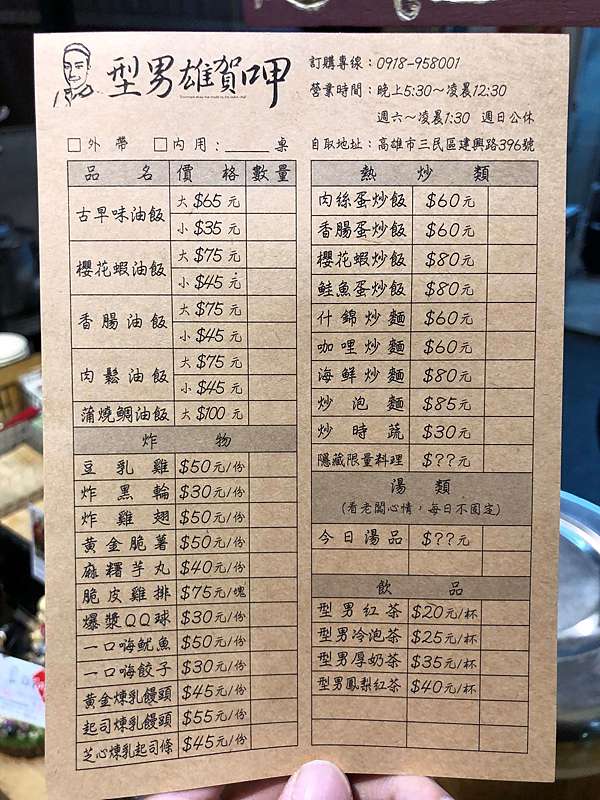 型男雄賀呷
訂購專線：0918-958001
營業時間：晚上5:30～凌晨12:30
週六～凌晨1:30 週日公休
□外帶 □內用：_____桌
自取地址：高雄市三民區建興路396號
品名 價格 數量
古早味油飯 大 $65 元
小 $35 元
櫻花蝦油飯 大 $75 元
小 $45 元
香腸油飯 大 $75 元
小 $45 元
肉鬆油飯 大 $75 元
小 $45 元
蒲燒鯛油飯 大 $100 元
炸物
豆乳雞 $50元/份
炸黑輪 $30元/份
炸雞翅 $50元/份
黃金脆薯 $50元/份
麻糬芋丸 $40元/份
脆皮雞排 $75元/塊
爆漿QQ球 $30元/份
一口嗨魷魚 $50元/份
一口嗨餃子 $30元/份
黃金煉乳饅頭 $45元/份
起司煉乳饅頭 $55元/份
芝心煉乳起司條 $45元/份
熱炒類
肉絲蛋炒飯 $60元
香腸蛋炒飯 $60元
櫻花蝦炒飯 $80元
鮭魚蛋炒飯 $80元
什錦炒麵 $60元
咖哩炒麵 $60元
海鮮炒麵 $80元
炒泡麵 $85元
炒時蔬 $30元
隱藏限量料理 $??元
湯類
(看老闆心情，每日不固定)
今日湯品 $??元
飲品
型男紅茶 $20元/杯
型男冷泡茶 $25元/杯
型男厚奶茶 $35元/杯
型男鳳梨紅茶 $40元/杯